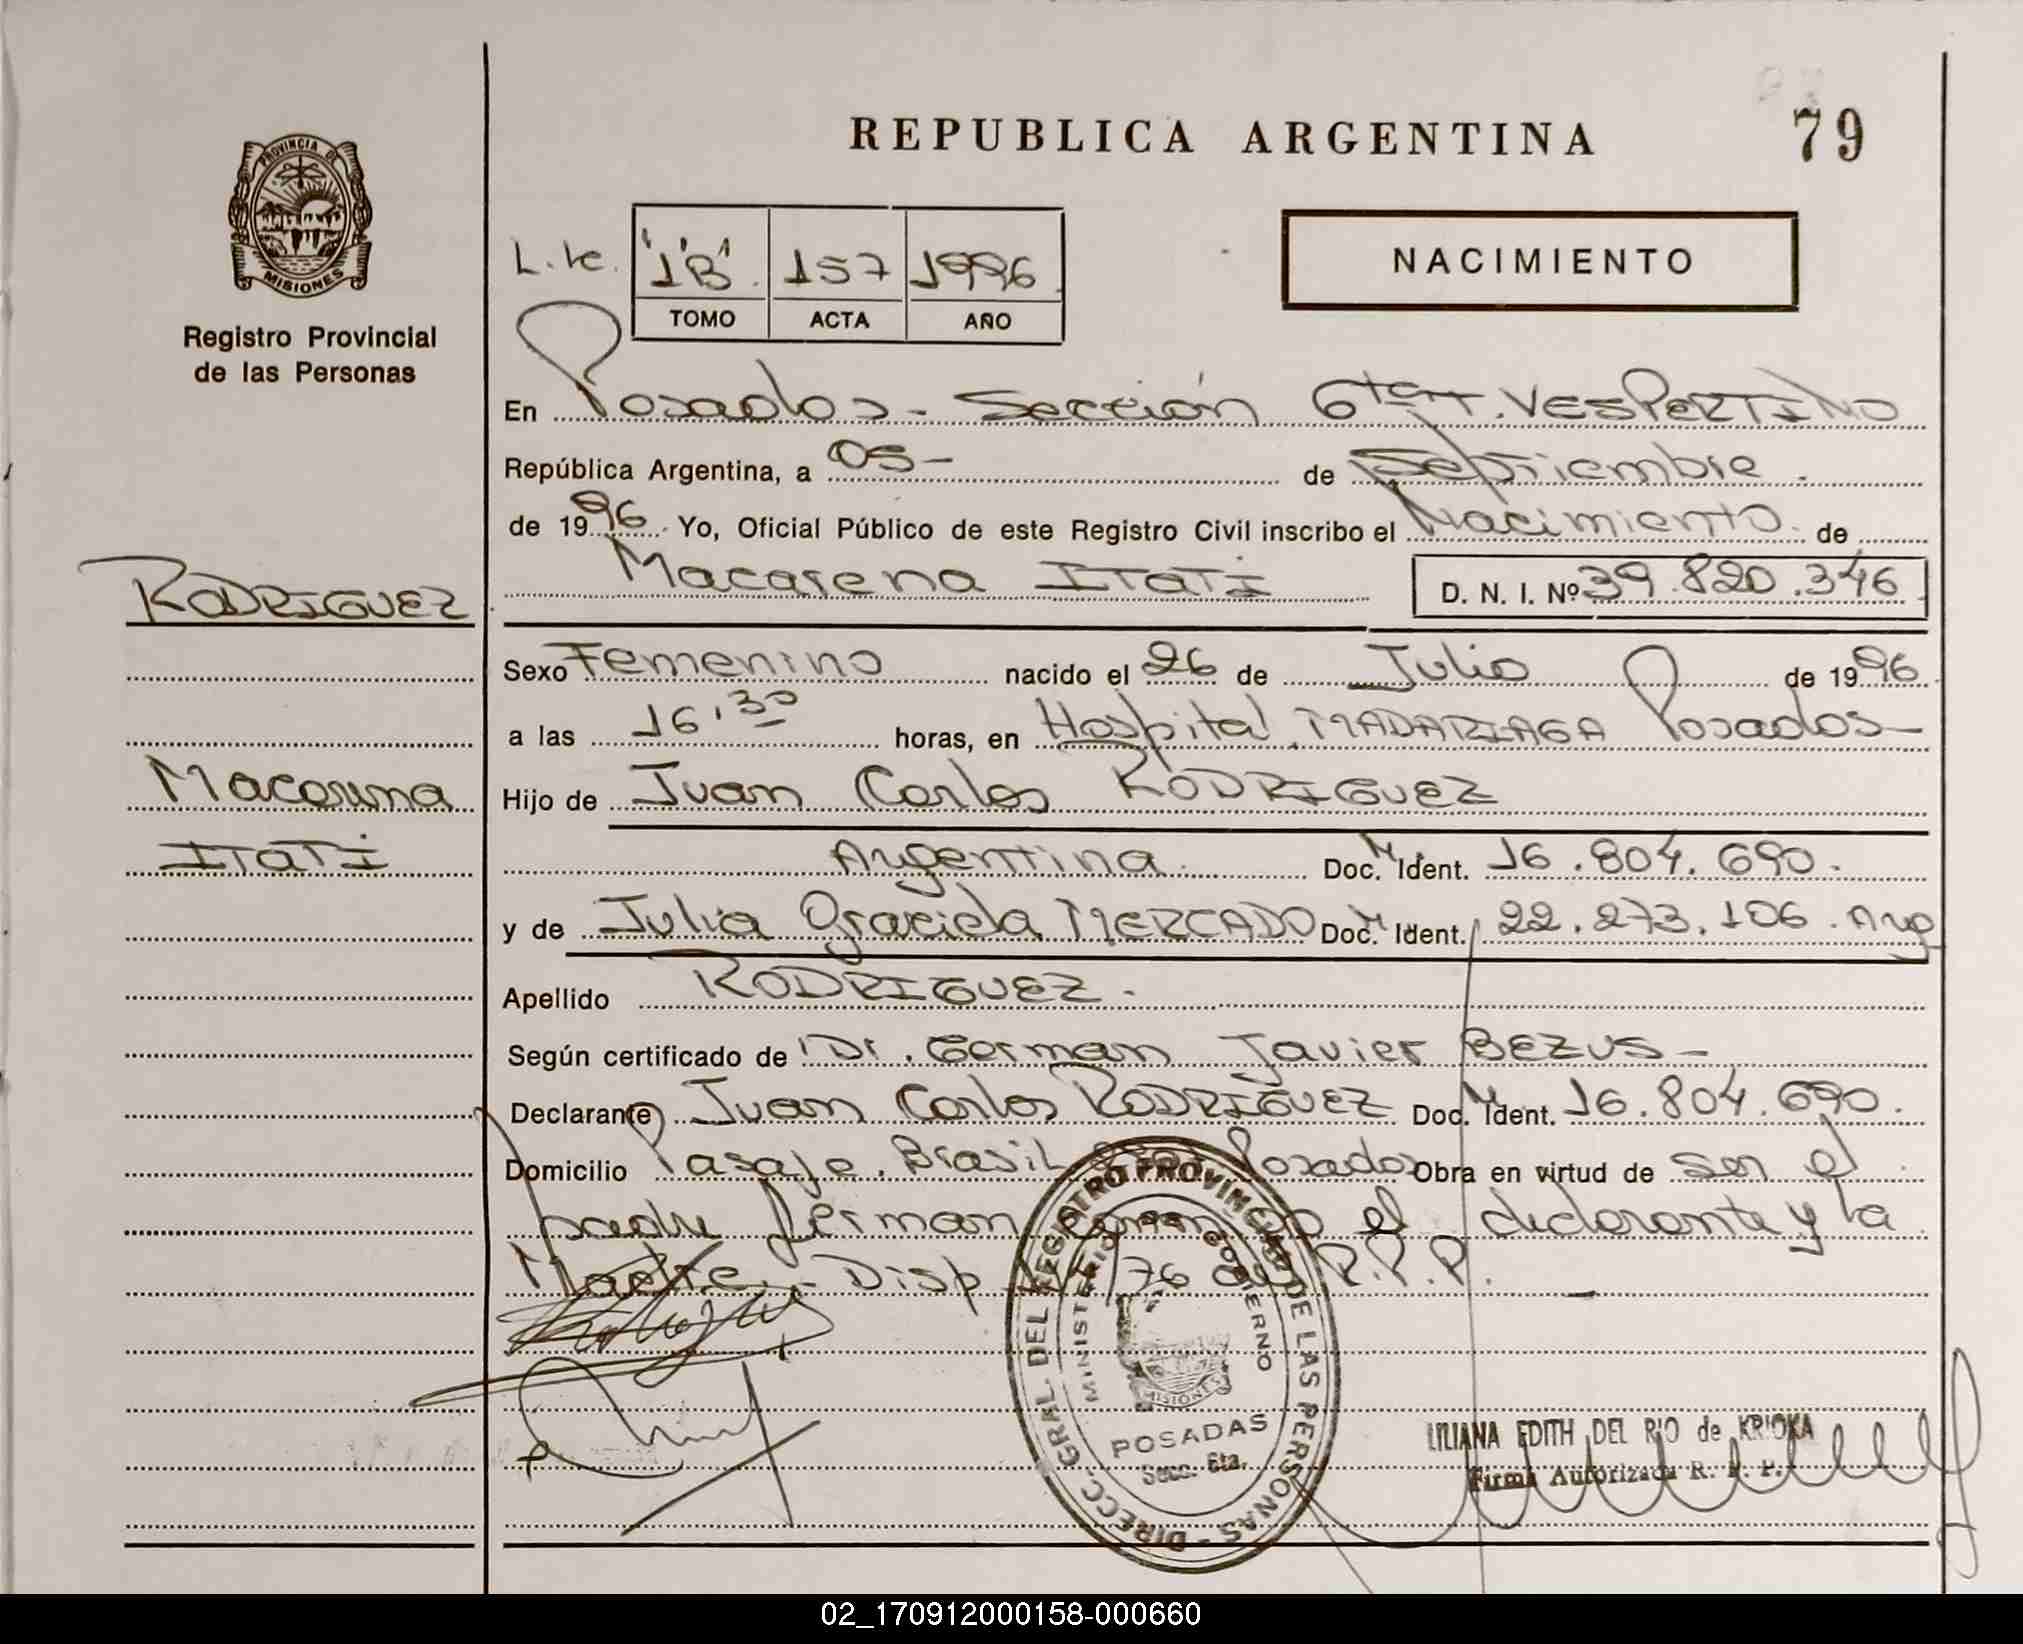 REPUBLICA ARGENTINA
79
PROVINCIA DE
MISIONES
Registro Provincial
de las Personas
NACIMIENTO
"1'B" 157 1996
TOMO ACTA AÑO
En Posadas - Sección 6ta VESPERTINO
República Argentina, a 05- de Septiembre
de 1996. Yo, Oficial Público de este Registro Civil inscribo el Nacimiento de
Macarena ITATI D. N. I. Nº 39.820.346
RODRIGUEZ
Macarena
ITATI
Sexo Femenino nacido el 26 de Julio de 1996
a las 16,30 horas, en Hospital MADARIAGA Posadas-
Hijo de Juan Carlos RODRIGUEZ
Argentina. Doc. Ident. 16.804.690.
y de Julia Graciela MERCADO Doc. Ident. 22.273.106. Arg
Apellido RODRIGUEZ.
Según certificado de Dr. German Javier BEZUS-
Declarante Juan Carlos RODRIGUEZ Doc. Ident. 16.804.690.
Domicilio Pasaje Brasil Posadas Obra en virtud de ser el
padre firman el declarante y la
Madre. - Disp 76 R.P.P.
DIRECC. GRAL. DEL REGISTRO PROVINCIAL DE LAS PERSONAS -
MINISTERIO GOBIERNO
MISIONES
POSADAS
Secc. 6ta.
LILIANA EDITH DEL RIO de KRIOKA
Firma Autorizada R. P. P.
02_170912000158-000660